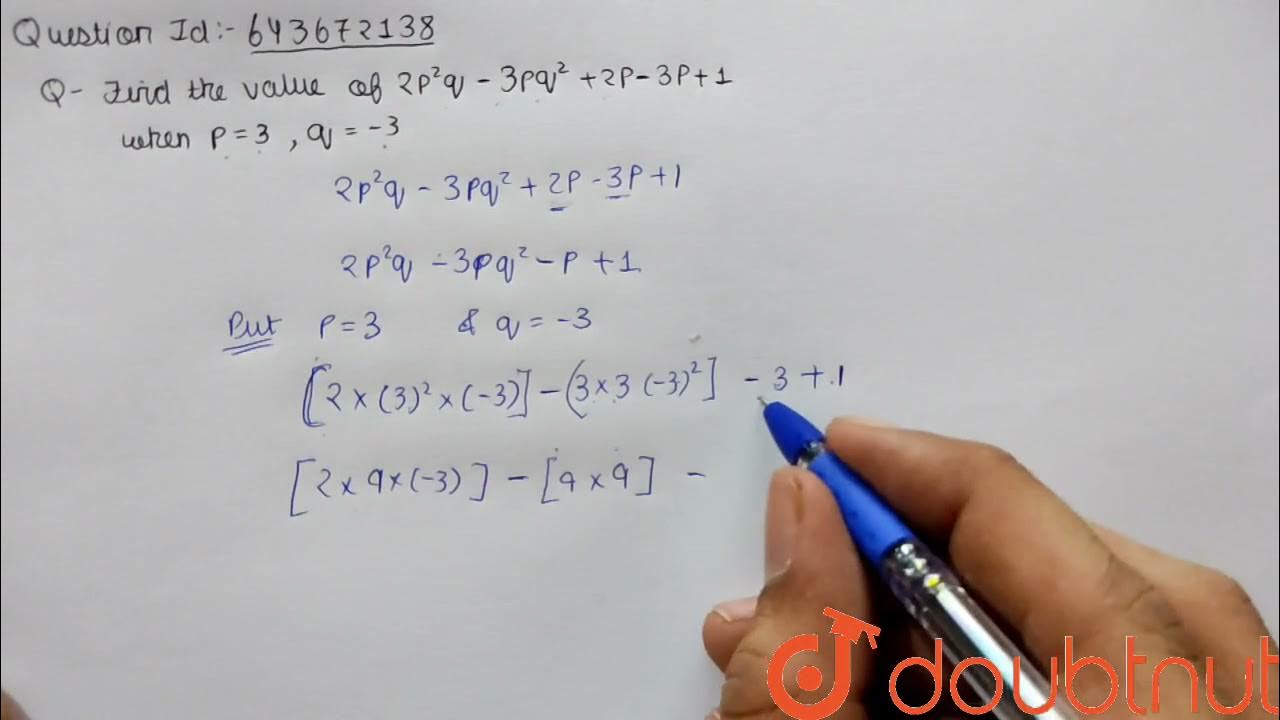 Question Id:- 643672138
Q- Find the value of 2p²q - 3pq² + 2P - 3P + 1
when P = 3 , q = -3
2p²q - 3pq² + 2P - 3P + 1
2p²q - 3pq² - P + 1
Put P = 3 & q = -3
[2 × (3)² × (-3)] - (3 × 3 (-3)²] - 3 + 1
[2 × 9 × (-3)] - [9 × 9] -
doubtnut